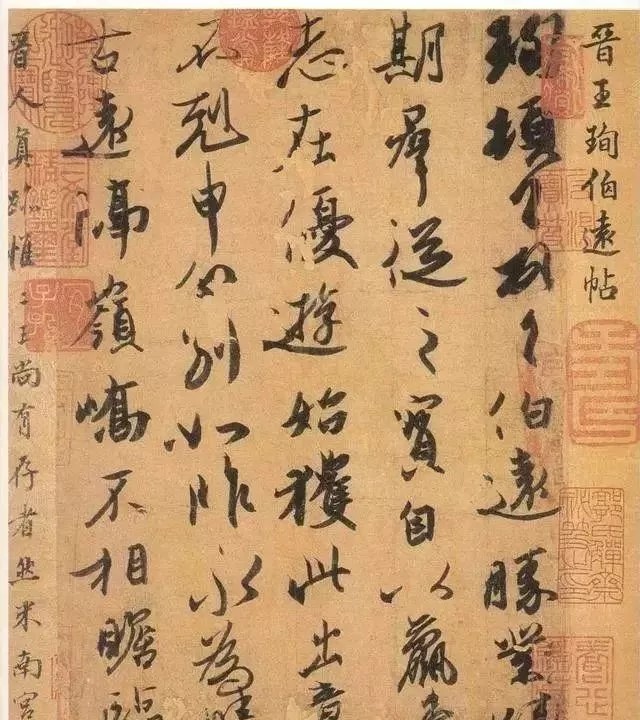 晉王珣伯遠帖
珣頓首頓首伯遠勝業
期羣從之寶自以羸
志在優遊始獲此出意
不剋申分別如昨永為
古遠隔嶺嶠不相瞻臨
晉人真跡惟二王尚有存者然米南宮